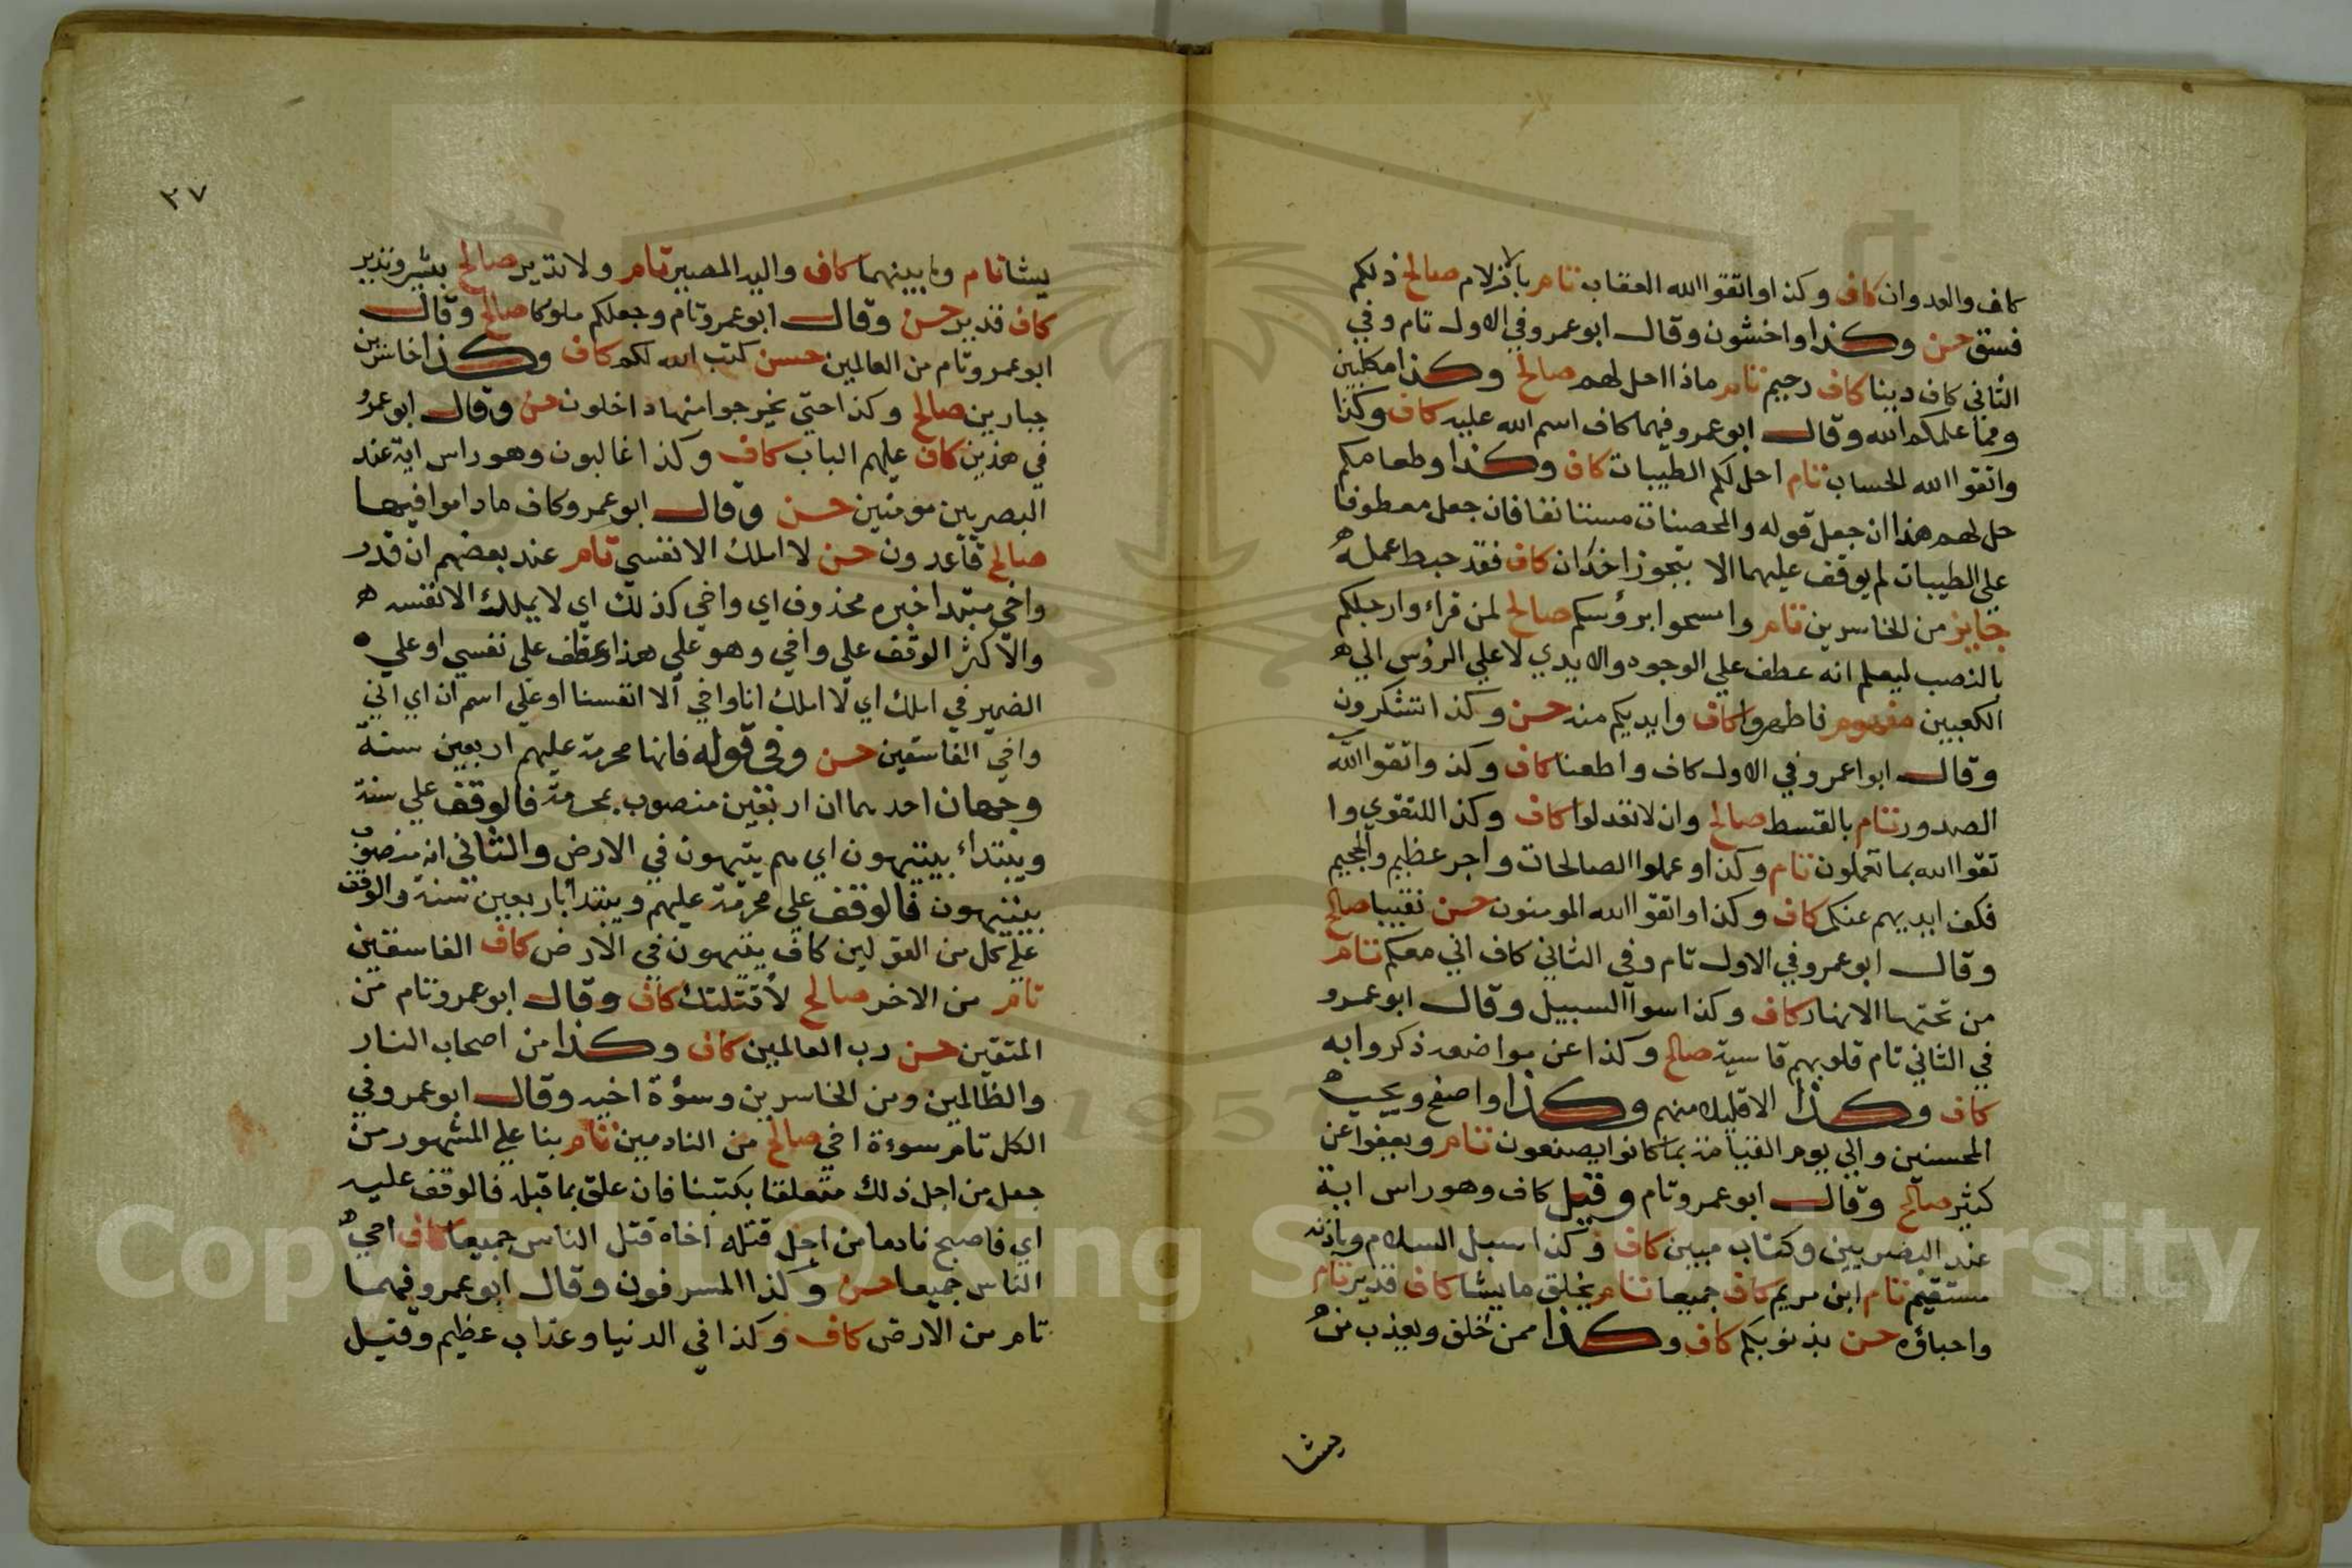 كاف والعدوان كاف وكذا واتقوا الله العقاب تام بالازلام صالح ذلكم
فسق حسن وكذا واخشون وقال ابو عمرو في الاول تام وفي
الثاني كاف دينا كاف رحيم تام ماذا احل لهم صالح وكذا مكلبين
ومما علمكم الله وقال ابو عمرو فيهما كاف اسم الله عليه كاف وكذا
واتقوا الله الحساب تام احل لكم الطيبات كاف وكذا وطعامكم
حل لهم هذا ان جعل قوله والمحصنات مستانفا فان جعل معطوفا
على الطيبات لم يوقف عليهما الا بتجوز اخدان كاف فقد حبط عمله
جايز من الخاسرين تام وامسحوا برؤسكم صالح لمن قراء وارجلكم
بالنصب ليعلم انه عطف على الوجوه والايدي لا على الرؤس الي
الكعبين مفهوم فاطهروا كاف وايديكم منه حسن وكذا تشكرون
وقال ابوا عمرو في الاول كاف واطعنا كاف وكذ واتقوا الله
الصدور تام بالقسط صالح وان لا تعدلوا كاف وكذا للتقوي وا
تقوا الله بما تعملون تام وكذا وعملوا الصالحات واجر عظيم والجحيم
فكف ايديهم عنكم كاف وكذا واتقوا الله المومنون حسن نقيبا صالح
وقال ابو عمرو في الاول تام وفي الثاني كاف اني معكم تام
من تحتها الانهار كاف وكذا سوآ السبيل وقال ابو عمرو
في الثاني تام قلوبهم قاسية صالح وكذا عن مواضعه ذكروا به
كاف وكذا الا قليلا منهم وكذا واصفح ويحب
المحسنين والي يوم القيامة بما كانوا يصنعون تام ويعفوا عن
كثير صالح وقال ابو عمرو تام وقيل كاف وهو راس اية
عند البصريين وكتاب مبين كاف وكذا سبل السلام وباذنه
مستقيم تام ابن مريم كاف جميعا تام يخلق ما يشا كاف قدير تام
واحباؤه حسن بذنوبكم كاف وكذا ممن خلق ويعذب من
يشا
٣٧
يشا تام وما بينهما كاف واليه المصير تام ولا نذير صالح بشير ونذير
كاف قدير حسن وقال ابو عمرو تام وجعلكم ملوكا صالح وقال
ابو عمرو تام من العالمين حسن كتب الله لكم كاف وكذا خاسرين
جبارين صالح وكذا حتي يخرجوا منها داخلون حسن وقال ابو عمرو
في هذين كاف عليهم الباب كاف وكذا غالبون وهو راس اية عند
البصريين مومنين حسن وقال ابو عمرو كاف ما داموا فيها
صالح قاعدون حسن لا املك الا نفسي تام عند بعضهم ان قدر
واخي مبتدا خبره محذوف اي واخي كذلك اي لا يملك الا نفسه
والاكثر الوقف علي واخي وهو علي هذا عطف علي نفسي او علي
الضمير في املك اي لا املك انا واخي الا انفسنا او علي اسم ان اي اني
واخي الفاسقين حسن وفي قوله فانها محرمة عليهم اربعين سنة
وجهان احدهما ان اربعين منصوب بمحرمة فالوقف علي سنة
ويبتداء بيتيهون اي هم يتيهون في الارض والثاني انه منصوب
بيتيهون فالوقف علي محرمة عليهم ويبتدا باربعين سنة والوقف
علي كل من القولين كاف يتيهون في الارض كاف الفاسقين
تام من الاخر صالح لأقتلنك كاف وقال ابو عمرو تام من
المتقين حسن رب العالمين كاف وكذا من اصحاب النار
والظالمين ومن الخاسرين وسؤة اخيه وقال ابو عمرو في
الكل تام سوءة اخي صالح من النادمين تام بنا علي المشهور من
جعل من اجل ذلك متعلقا بكتبنا فان علق بما قبله فالوقف عليه
اي فاصبح نادما من اجل قتله اخاه قتل الناس جميعا كاف احيي
الناس جميعا حسن وكذا المسرفون وقال ابو عمرو فيهما
تام من الارض كاف وكذا في الدنيا وعذاب عظيم وقيل
1957
Copyright © King Saud University